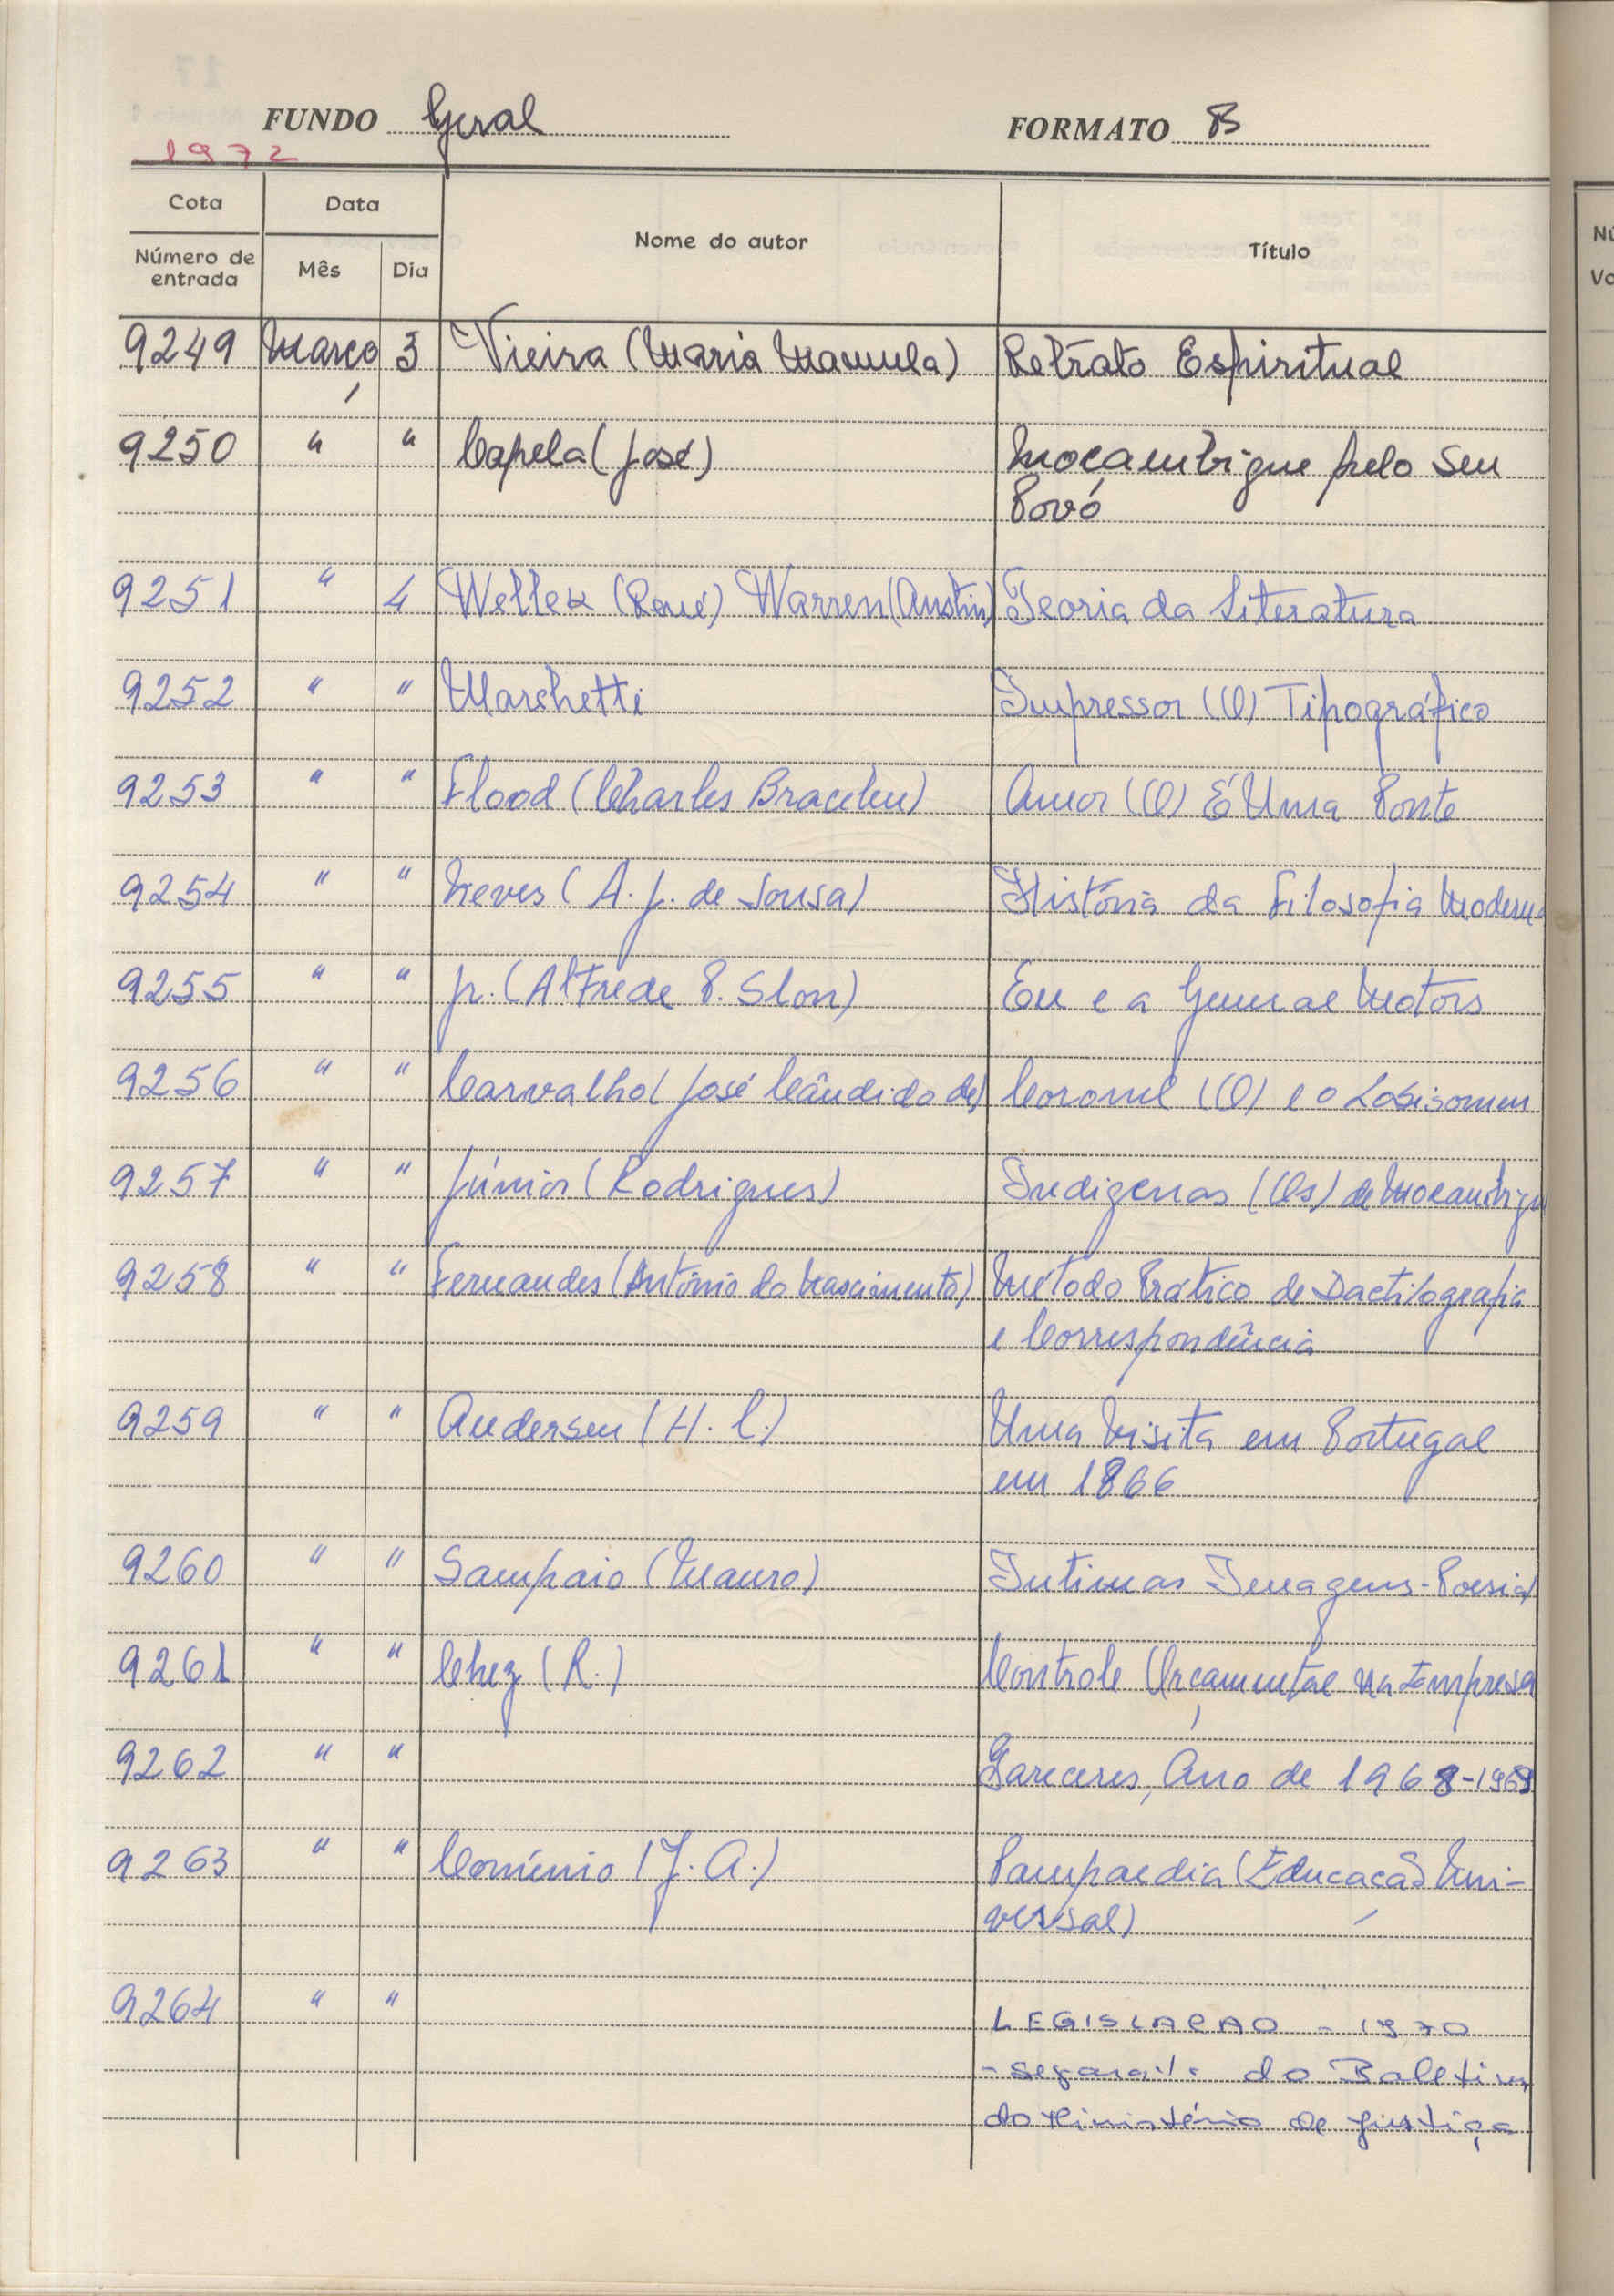 FUNDO Geral FORMATO B
1972
Cota Data Nome do autor Título
Número de entrada Mês Dia
9249 Março 3 Vieira (Maria Manuela) Retrato Espiritual
9250 " " Capela (José) Moçambique pelo Seu
Povo
9251 " 4 Wellek (René) Warren (Austin) Teoria da Literatura
9252 " " Marshetti Impressor (O) Tipográfico
9253 " " Flood (Charles Bracelen) Amor (O) É Uma Ponte
9254 " " Neves (A. J. de Sousa) História da Filosofia Moderna
9255 " " Jr. (Alfrede P. Slon) Eu e a General Motors
9256 " " Carvalho (José Cândido de) Coronel (O) e o Lobisomem
9257 " " Júnior (Rodrigues) Indigenas (Os) de Moçambiqu
9258 " " Fernandes (António do Nascimento) Método Prático de Dactilografia
e Correspondência
9259 " " Andersen (H. C.) Uma Visita em Portugal
em 1866
9260 " " Sampaio (Mauro) Intimas Imagens-Poesia
9261 " " Chez (R.) Controle Orçamental na Empresa
9262 " " Pareceres, Ano de 1968-1969
9263 " " Comínio (J. A.) Pampaedia (Educação Uni-
versal)
9264 " " LEGISLAÇAO - 1970
- separata do Boletim
do Ministério de Justiça
Nú
Vo